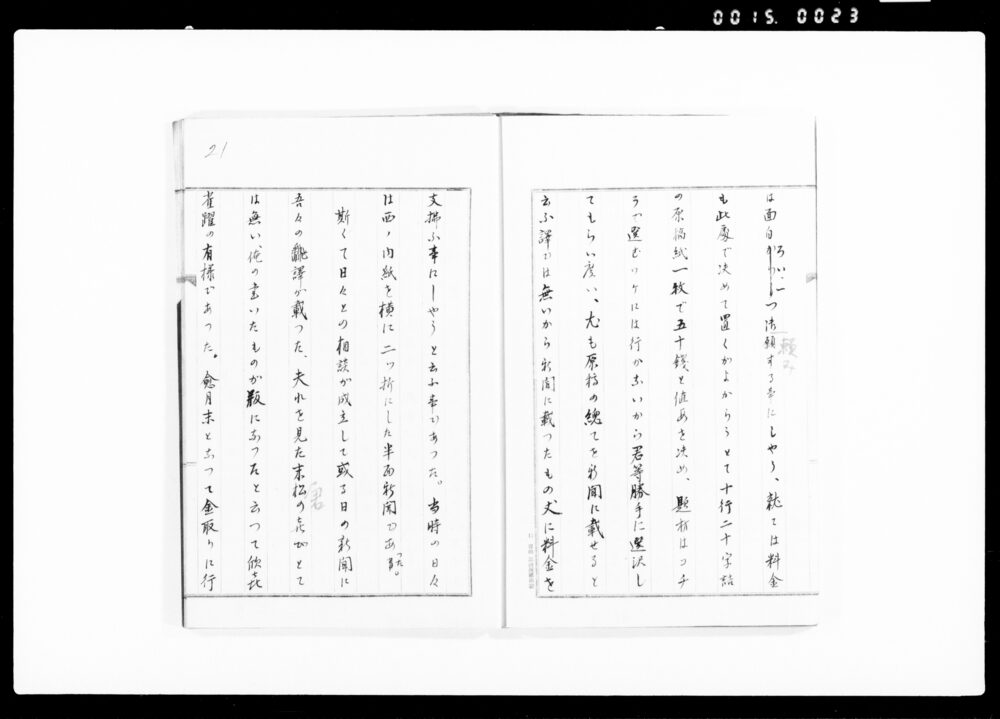 0015. 0023
は面白ろい、一つ御願する事にしやう、就ては料金
頼み
も此處で决めて置くがよからうとて十行二十字詰
の原稿紙一枚で五十錢と値段を决め、題材はコチ
ラで選むワケには行かないから君等勝手に選沢し
てもらい度い、尤も原稿の總てを新聞に載せると
云ふ譯では無いから新聞に載つたもの丈に料金を
21
支拂ふ事にしやうと云ふ事であつた。当時の日々
は西ノ内紙を横に二ツ折にした半面新聞であつた。
斯くて日々との相談が成立して或る日の新聞に
吾々の飜譯が載つた、夫れを見た末松の喜ぶまいとて
君
は無い、俺の書いたものが版になつたと云つて欣喜
雀躍の有様であつた。愈月末となつて金取りに行